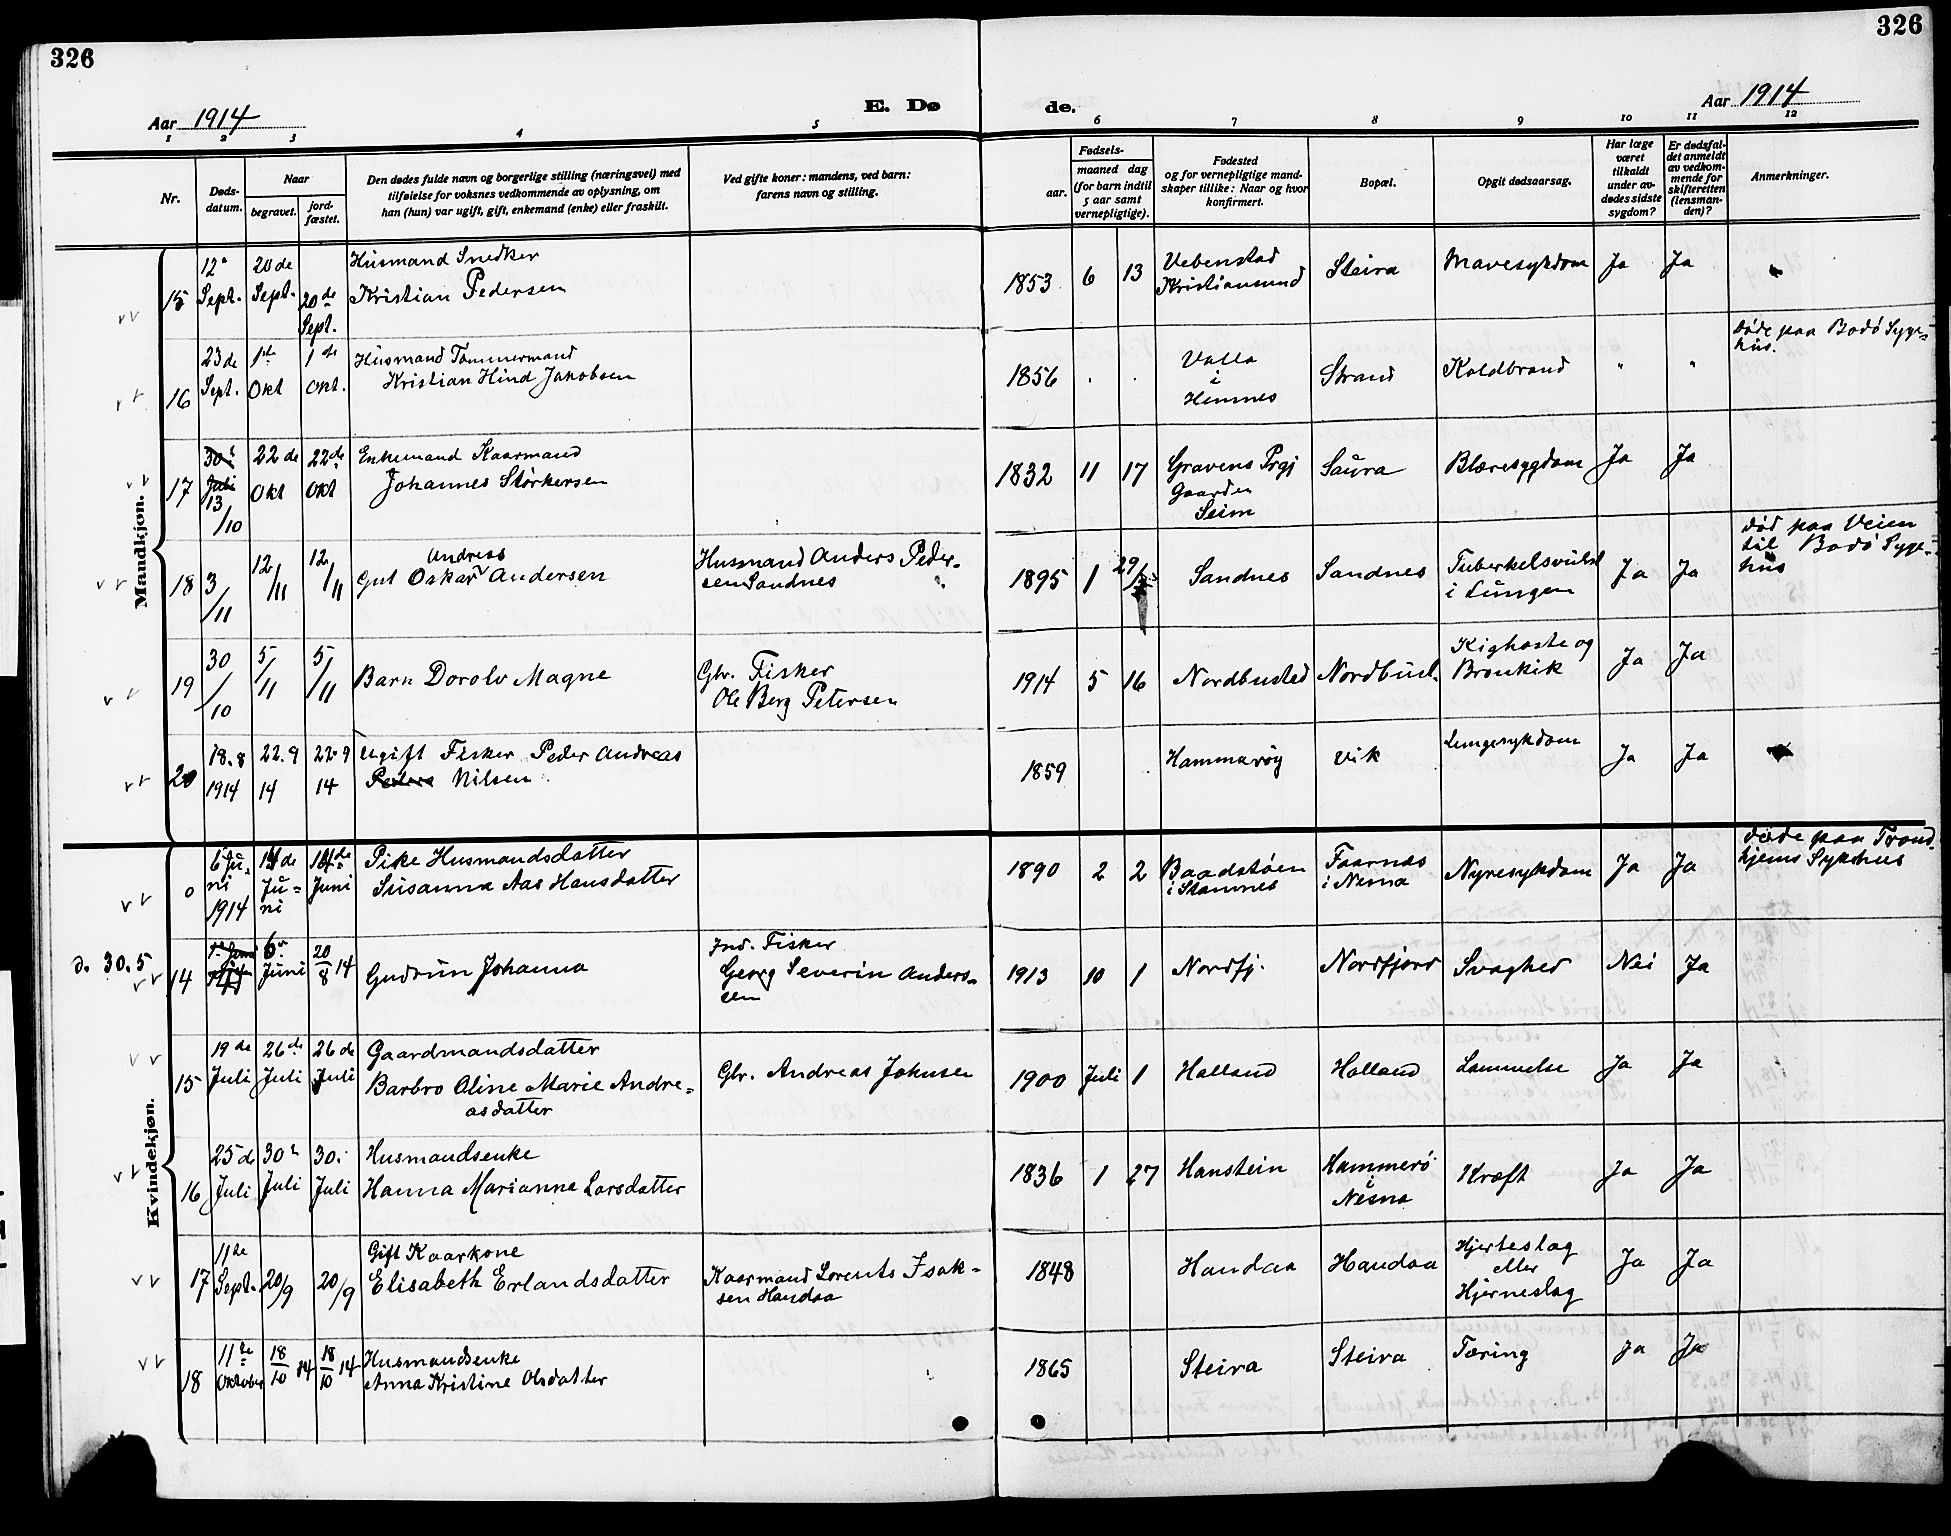 326
326
Aar 1914
E. Dø
de.
Aar 1914
1 2 3 4 5 6 7 8 9 10 11 12
Nr.
Døds-
datum.
Naar
begravet.
jord-
fæstet.
Den dødes fulde navn og borgerlige stilling (næringsvei) med
tilføielse for voksnes vedkommende av oplysning, om
han (hun) var ugift, gift, enkemand (enke) eller fraskilt.
Ved gifte koner: mandens, ved barn:
farens navn og stilling.
Fødsels-
aar.
maaned dag
(for barn indtil
5 aar samt
vernepligtige).
Fødested
og for vernepligtige mand-
skaper tillike: Naar og hvor
konfirmert.
Bopæl.
Opgit dødsaarsag.
Har læge
været
tilkaldt
under av-
dødes sidste
sygdom?
Er dødsfal-
det anmeldt
av vedkom-
mende for
skifteretten
(lensman-
den)?
Anmerkninger.
Mandkjøn.
15 12te Sept. 20de Sept. 20de Sept.
Husmand Snedker
Kristian Pedersen
1853 6 13 Vebenstad Kristiansund Steira Mavesykdom Ja Ja
16 23de Sept. 1ste Okt 1ste Okt.
Husmand Tømmermand
Kristian Hind Jakobsen
1856 . . Valla i Hemnes Strand Koldbrand " "
Døde paa Bodø Syge-
hus.
17 30te Juli 13/10 22de Okt 22de Okt
Enkemand Kaarmand
Johannes Størkersen
1832 11 17 Gravens Prgj Gaarden Seim Saura Blæresygdom Ja Ja
18 3/11 12/11 12/11
Andreas
Gut Oskar Andersen
Husmand Anders Peder-
sen Sandnes
1895 1 29 Sandnes Sandnes Tuberkelsvulst i Lungen Ja Ja
død paa Veien
til Bodø Syge-
hus
19 30/10 5/11 5/11
Barn Dorolv Magne
Gbr. Fisker
Ole Berg Petersen
1914 5 16 Nordbusted Nordbust. Kighoste og Bronkik Ja Ja
20 18.8 1914 22.9 14 22.9 14
Ugift Fisker Peder Andreas
Nilsen
1859 Hammarøy Vik Lungesykdom Ja Ja
Kvindekjøn.
0 6 Ju-
ni 1914 14de Ju-
ni 14de Juni
Pike Husmandsdatter
Susanna Aas Hansdatter
1890 2 2 Baadstøen i Stamnes Faarnes i Nesna Nyresykdom Ja Ja
døde paa Trond-
hjems Sykehus
d. 30.5
14 1te Juni 1914 6te Juni 20/8 14
Gudrun Johanna
Ind. Fisker
Georg Severin Anders-
sen
1913 10 1 Nordfj. Nordfjord Svaghed Nei Ja
15 19de Juli 26de Juli 26de Juli
Gaardmandsdatter
Barbro Oline Marie Andre-
asdatter
Gbr. Andreas Johnsen
1900 Juli 1 Halland Holland Lammelse Ja Ja
16 25de Juli 30te Juli 30. Juli
Husmandsenke
Hanna Marianna Larsdatter
1836 1 27 Hanstein Hammerø i Nesna Kræft Ja Ja
17 11te Sept. 20/9 20/9
Gift Kaarkone
Elisabeth Erlandsdatter
Kaarmand Lorents Isak-
sen Handaa
1848 Handaa Handaa Hjerteslag eller Hjerneslag Ja Ja
18 11te Oktober 18/10 14 18/10 14
Husmandsenke
Anna Kristine Olsdatter
1865 Steira Steira Tæring Ja Ja